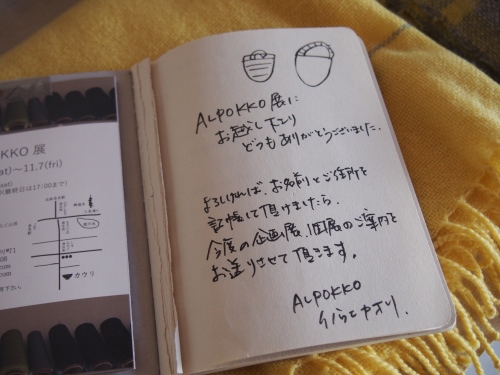 KKO 展
at)〜11.7(fri)
最終日は17:00まで)
カウリ
ALPOKKO 展に
お越し下さり
どうもありがとうございました.
よろしければ、お名前とご住所を
記帳して頂けましたら、
今後の企画展、個展のご案内を
お送りさせて頂きます。
ALPOKKO